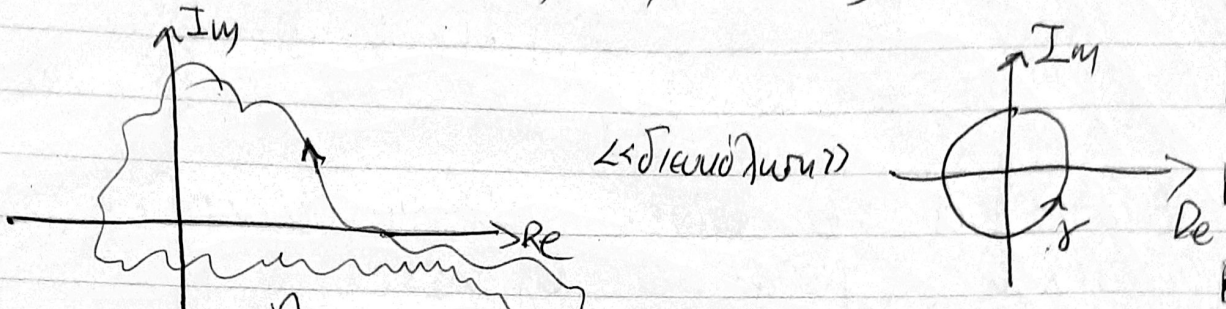 Im
Re
<<διευκόλυνση>>
Im
Re
γ